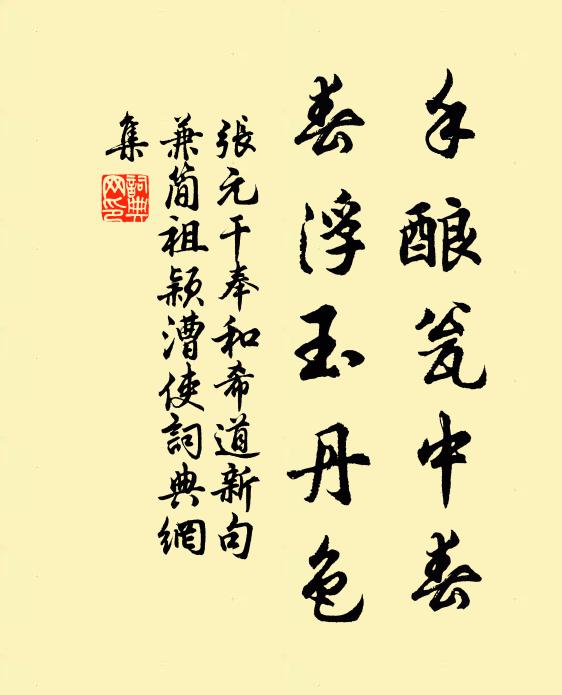 手酿瓮中春
春浮玉丹色
張元干奉和希道新句
兼简祖颖漕使詞典網
集
詞典
网印